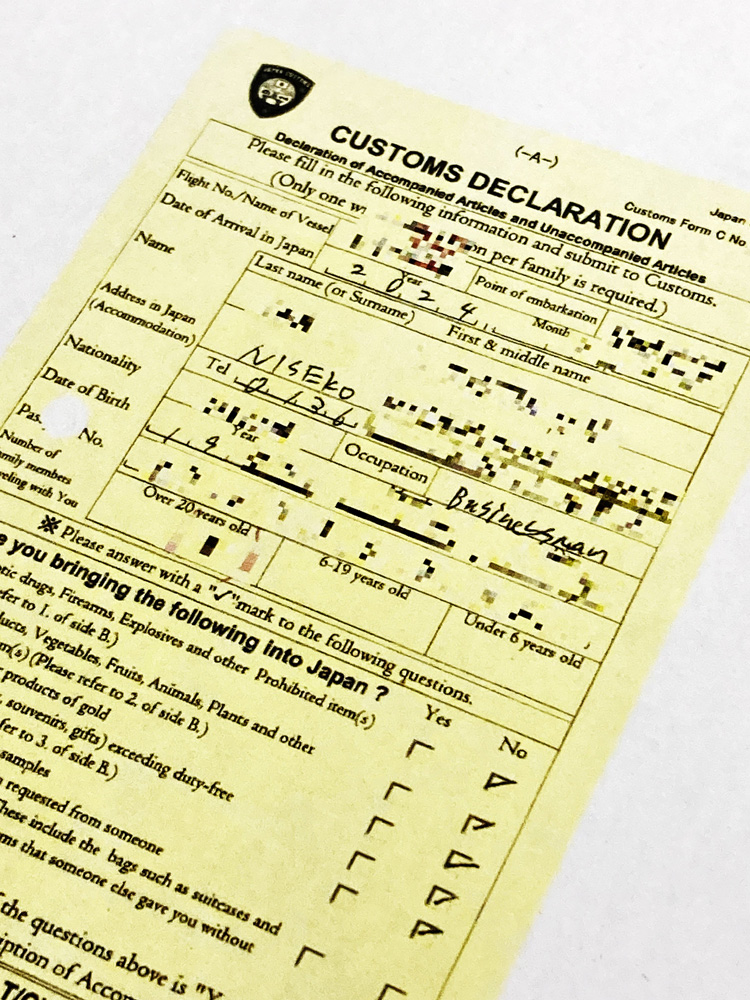 JAPAN CUSTOMS
(-A-)
Japan
CUSTOMS DECLARATION
Customs Form C No
Declaration of Accompanied Articles and Unaccompanied Articles
Please fill in the following information and submit to Customs.
(Only one on per family is required.)
Flight No./Name of Vessel
Point of embarkation
Date of Arrival in Japan
2 0 2 4
Year
Month
Name
Last name (or Surname)
First & middle name
Address in Japan
(Accommodation)
NISEKO
Tel 0 1 3 6
Nationality
Occupation
Businessman
Date of Birth
1 9
Year
Pas. No.
Number of
amily members
eling with You
Over 20 years old
6-19 years old
Under 6 years old
※ Please answer with a "✓" mark to the following questions.
e you bringing the following into Japan ?
Yes
No
otic drugs, Firearms, Explosives and other Prohibited item(s)
efer to 1. of side B.)
ducts, Vegetables, Fruits, Animals, Plants and other
m(s) (Please refer to 2. of side B.)
products of gold
, souvenirs, gifts) exceeding duty-free
efer to 3. of side B.)
samples
requested from someone
hese include the bags such as suitcases and
ms that someone else gave you without
the questions above is "Y
ription of Accom